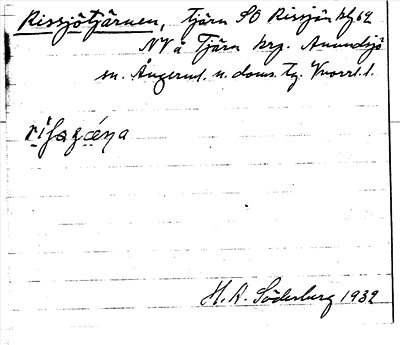 Rissjötjärnen, tjärn SO Rissjön kbl 62
NV å Tjärn krg. Anundsjö
sn. Ångerml. n. doms. tg. Vnorrl. l.
H. R. Söderberg 1932